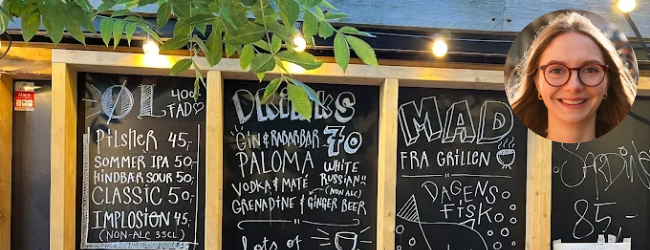 ØL
400
FAD
PILSNER 45,-
SOMMER IPA 50,-
HINDBÆR SOUR 50,-
CLASSIC 50,-
IMPLOSION 45,-
(NON-ALC 33CL)
DRINKS
70
GIN & RABARBAR
PALOMA
WHITE
RUSSIAN!!
(NON ALC)
VODKA & MATÉ
GRENADINE & GINGER BEER
Lots of
MAD
FRA GRILLEN
DAGENS
FISK
SARDIN
85,-